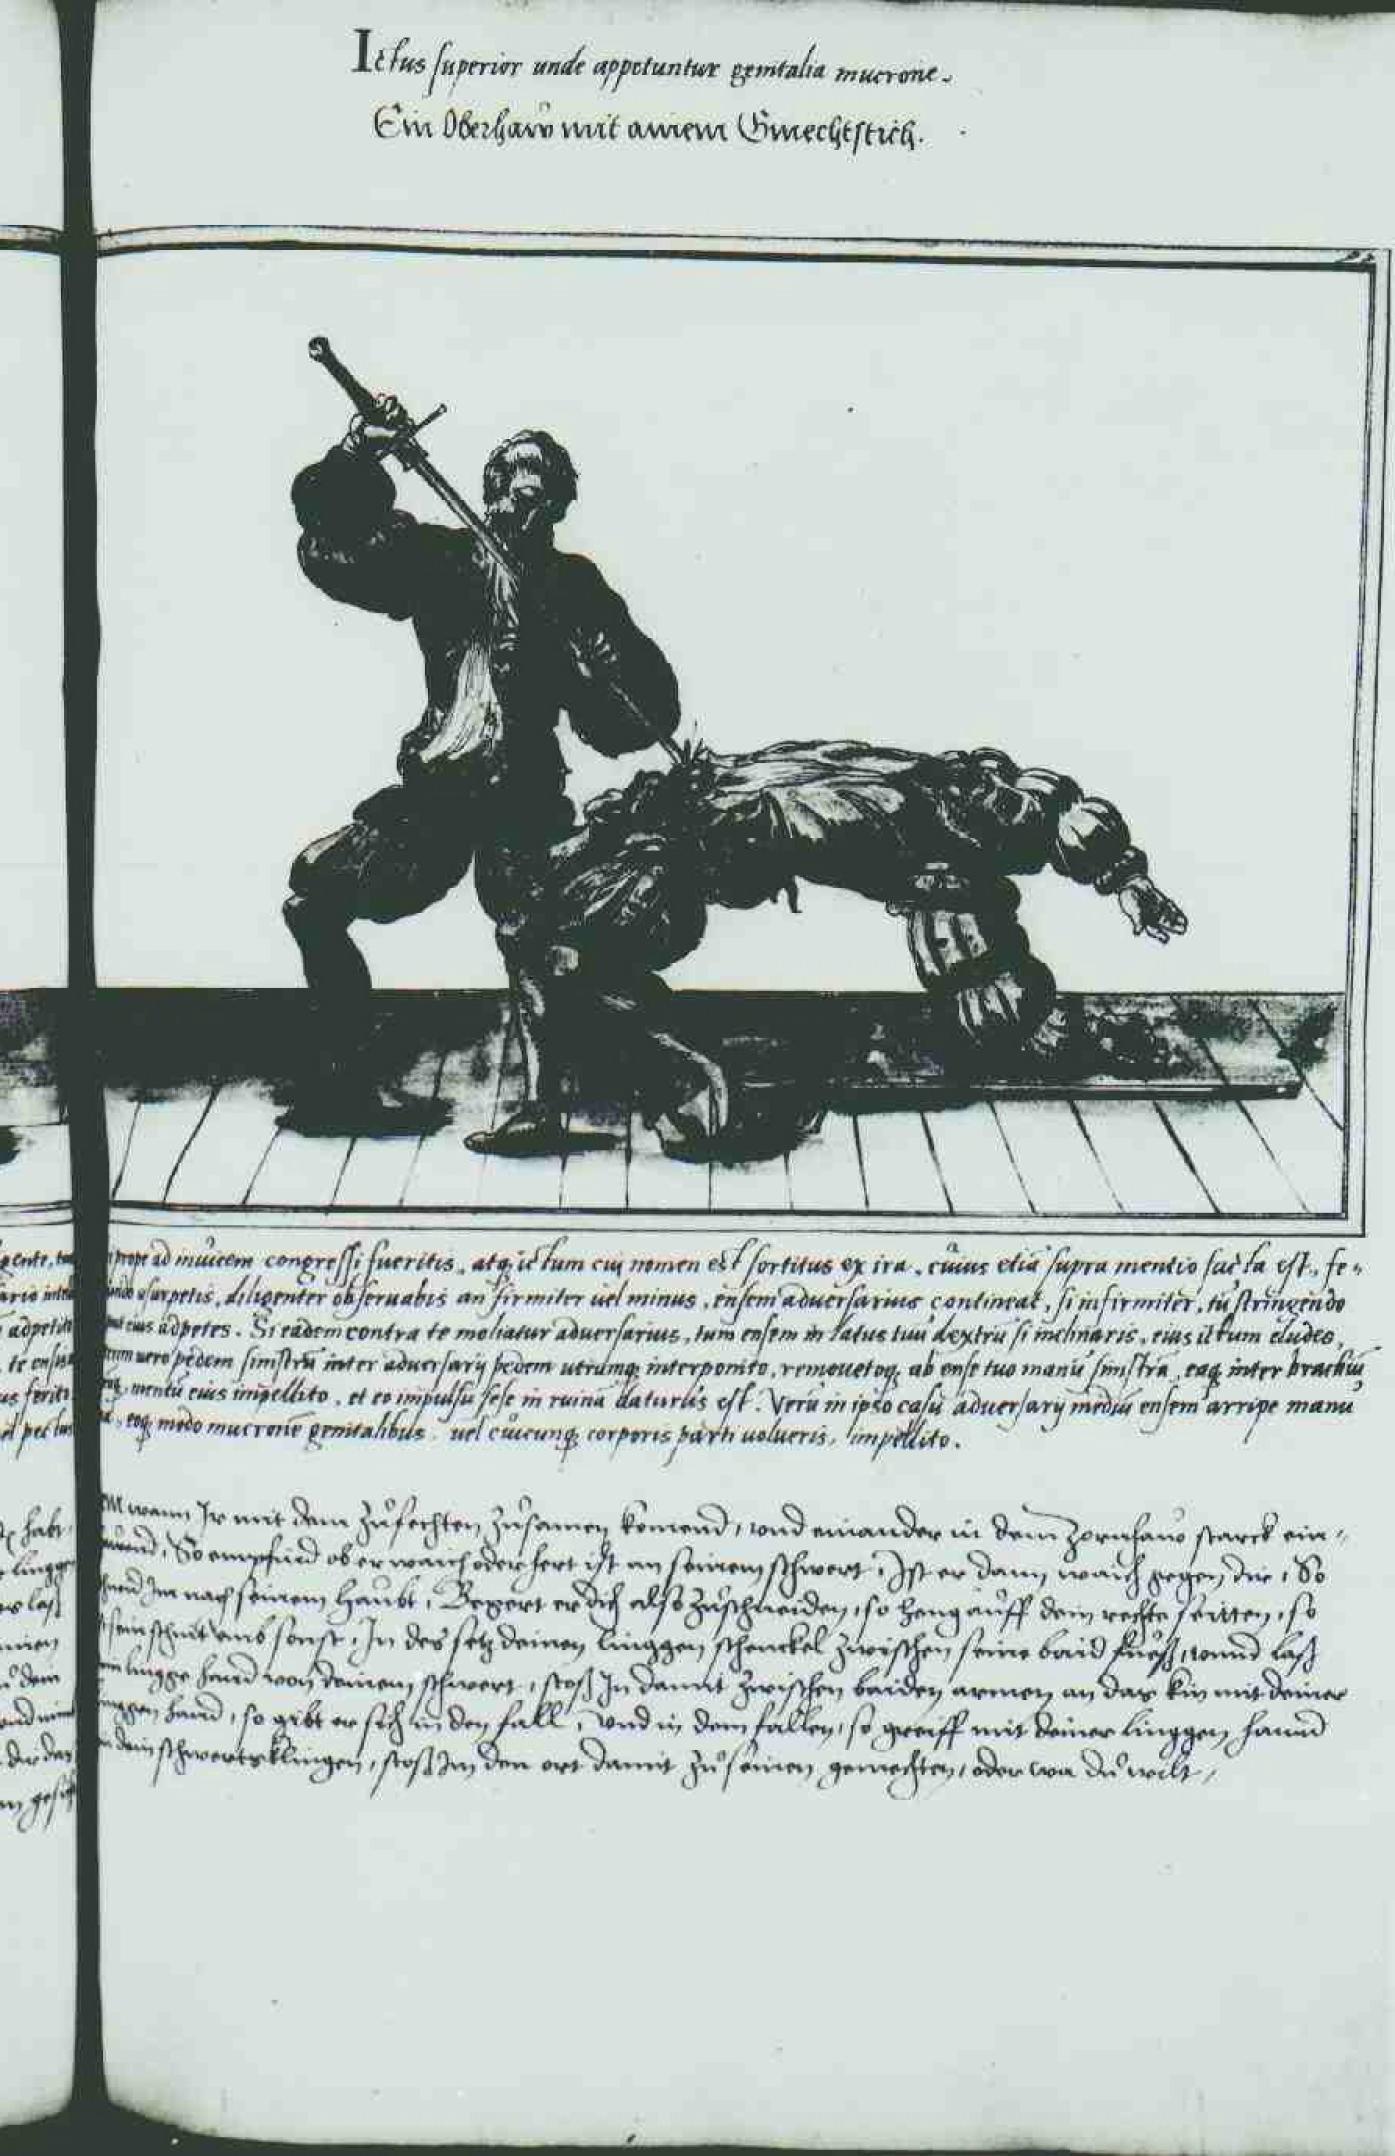 Ictus superior unde appetuntur genitalia mucrone.
Ein Oberhaw mit ainem Gmechtstich.
prope ad invicem congressi fueritis, atq; ictum cui nomen est sortitus ex ira, cuius etiã supra mentio facta est, fe=
usurpetis, diligenter observabis an firmiter vel minus, ensem adversarius contineat, si infirmiter, tu stringendo
eius adpetes. Si eadem contra te moliatur adversarius, tum ensem in latus tuũ dextrũ si inclinaris, eius ictum eludes,
vero pedem sinistrũ inter adversarij pedem utrumq; interponito, removetoq; ab ense tuo manũ sinistrã, eaq; inter brachiũ
mentũ eius impellito, et eo impulsu sese in ruinã daturus est. Verũ in ipso casu adversarij mediũ ensem arripe manu
eoq; modo mucronẽ genitalibus, vel cuicunq; corporis parti volueris, impellito.
wann Ir mit dem zůfechten zůsamen komend, und einander in dem Zornhaw starck ein=
So empfind ob er waich oder hert ist an seinem schwert, Ist er dann waich gegen dir, So
Im nach seinem haubt, Begert er dich also zůschneiden, so heng auff dein rechte seitten, so
sein schnit umb sonst, In des setz deinen linggen schenckel zwischen seine baid fuess, unnd lass
lingge hand von deinem schwert, stoss In damit zwischen baiden armen an das kin mit deiner
hand, so gibt er sich in den fall, Und in dem fallen, so greiff mit deiner linggen hannd
in dein schwertzklingen, stoss Im den ort damit zů seinen gemechten, oder wa du wilt,